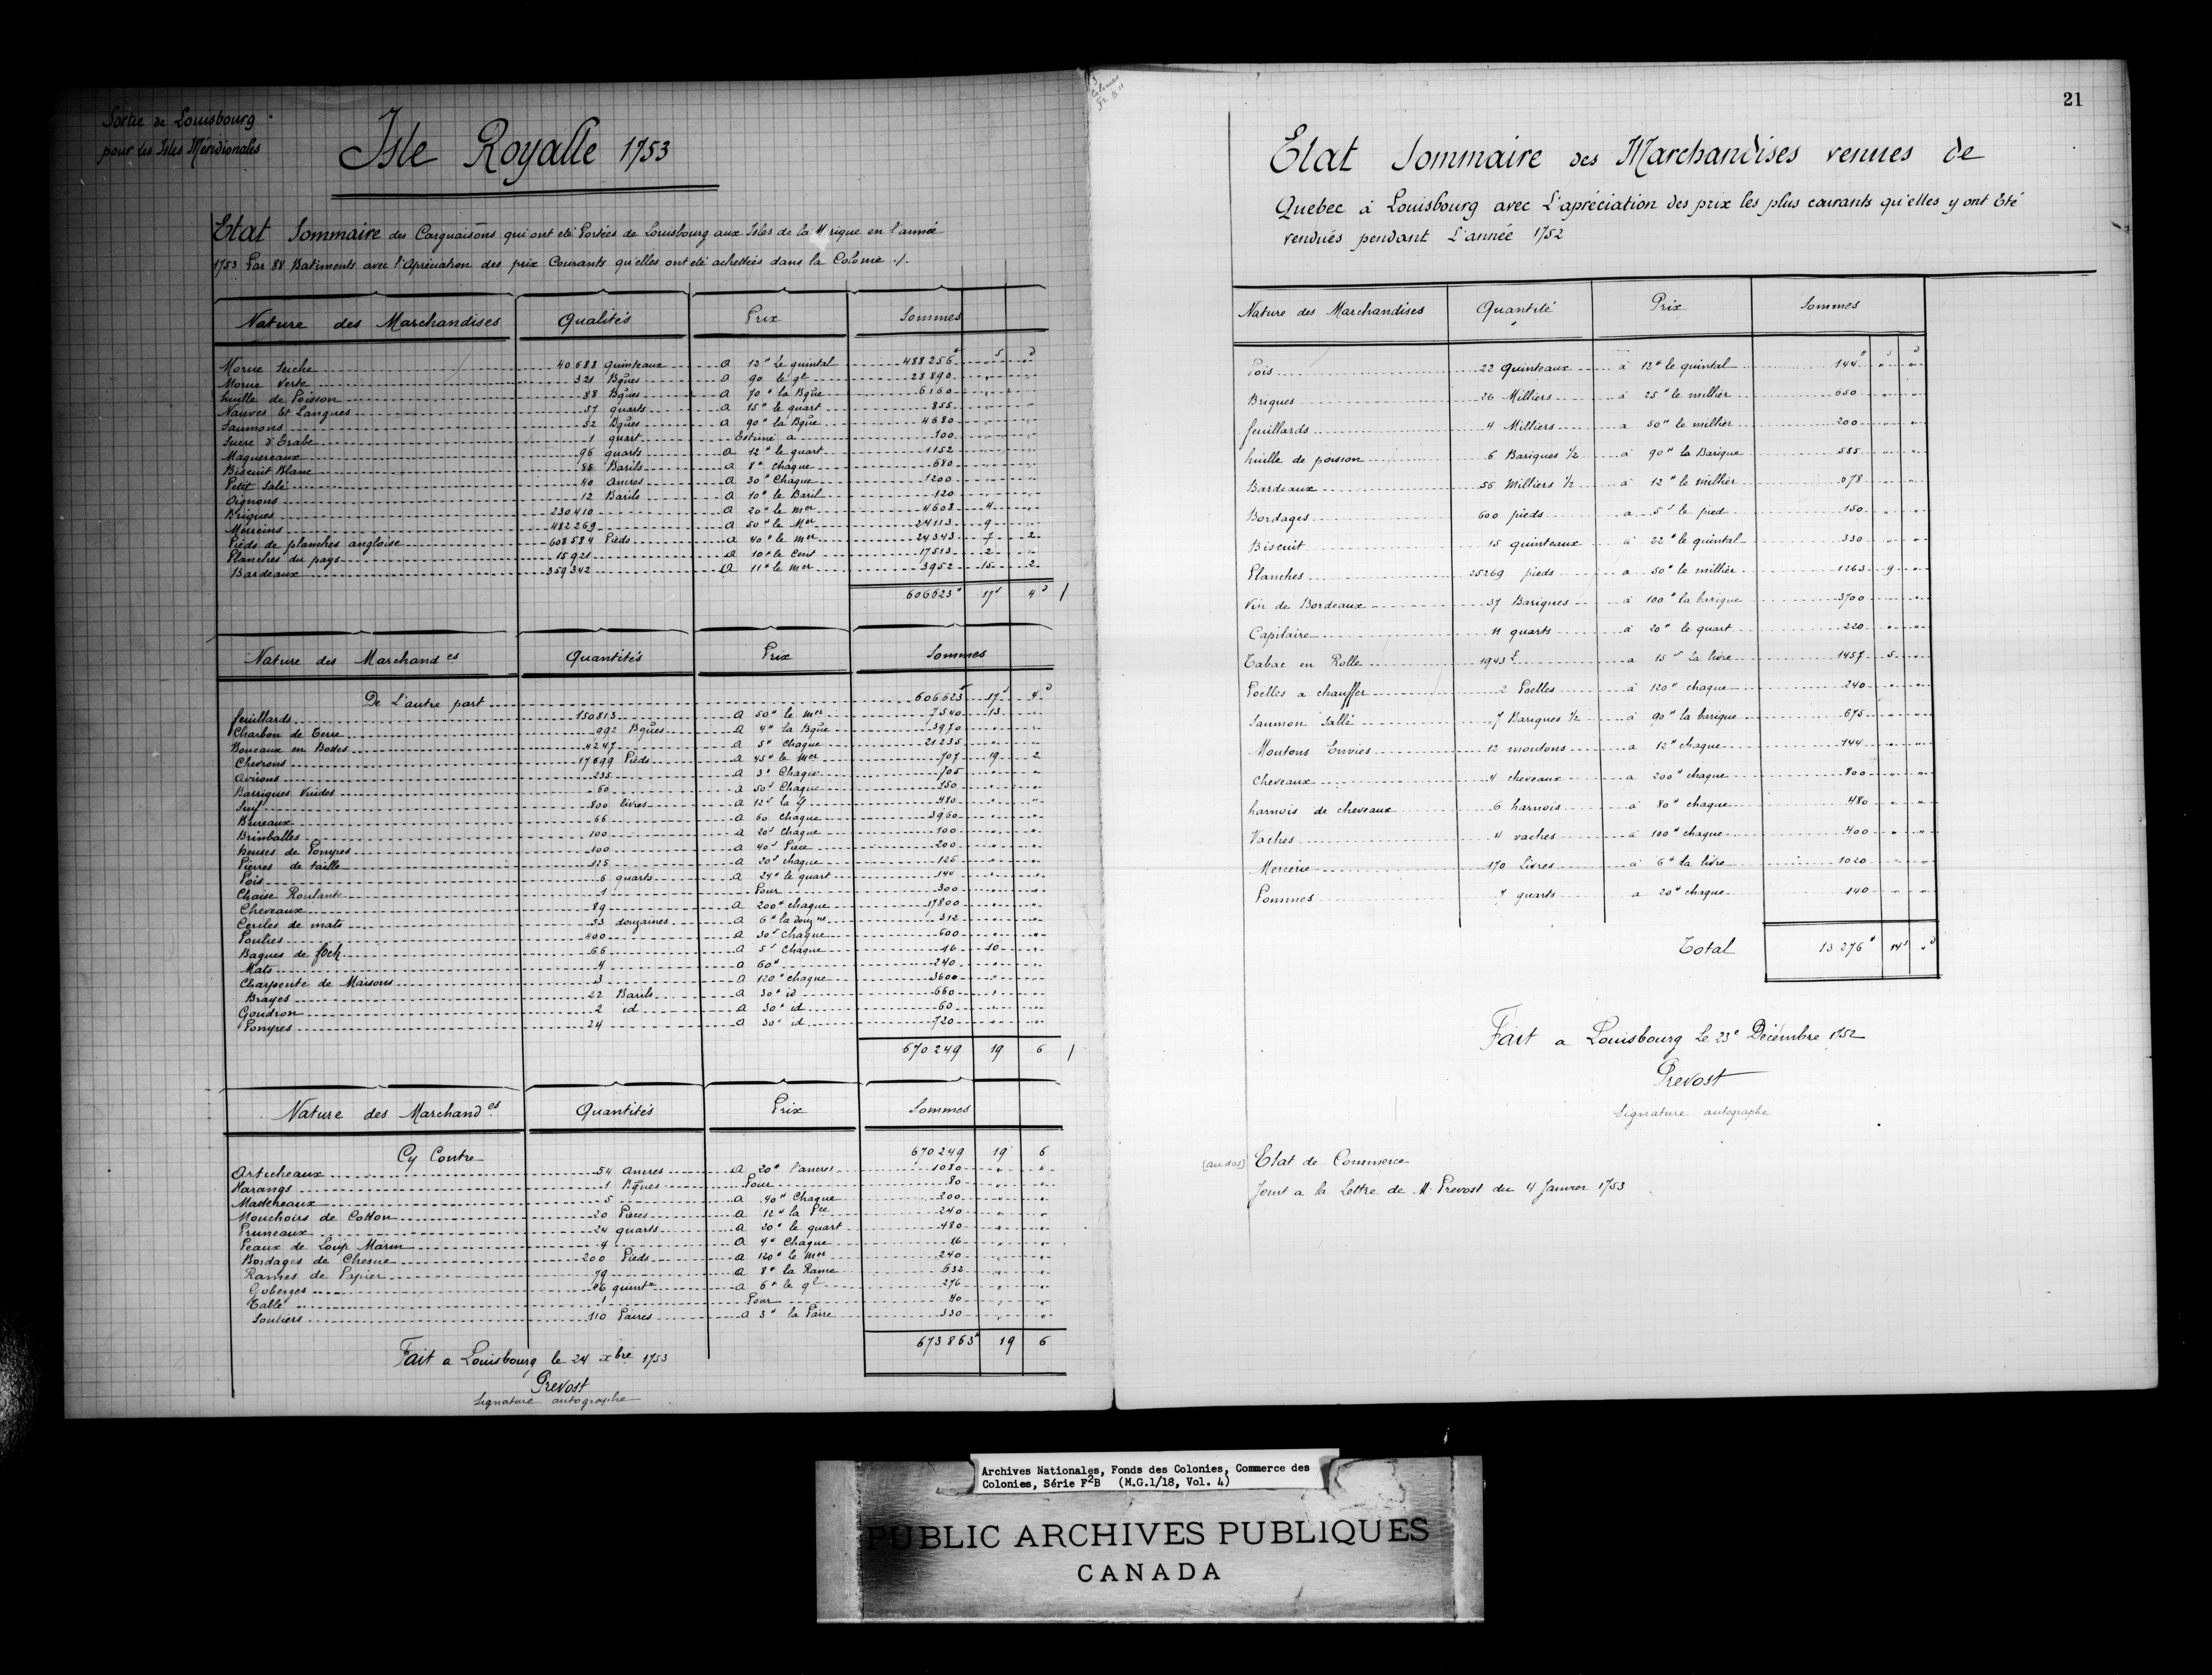 Sortie de Louisbourg
pour les Isles Méridionales
Isle Royalle 1753
Etat Sommaire des Carguaisons qui ont eté Portées de Louisbourg aux Isles de la M rique en l'année
1753 Par 88 Batiments avec l'Apréciation des prix Courants qu'elles ont eté achettées dans la Colonie ./.
Nature des Marchandises Qualités Prix Sommes
Morue Seiche 40688 quinteaux a 12# Le quintal 488256# " s " d
Morue Verte 321 Bques a 90 le ql 28890 " "
huille de Poisson 88 Bques a 70# la Bque 6160 " "
Nauves Et Langues 57 quarts a 15# le quart 855 " "
Saumons 52 Bques a 90# la Bque 4680 " "
Sucre d'Erabe 1 quart Estimé a 100 " "
Maquereaux 96 quarts a 12# le quart 1152 " "
Biscuit Blanc 85 Barils a 8# chaque 680 " "
Petit Salé 40 ancres a 30# Chaque 1200 " "
Oignons 12 Barils a 10# le Baril 120 " "
Briques 230410 a 20# le mer 4608 4 "
Merreins 482269 a 50# le Mer 24113 9 "
Pieds de planches angloise 608584 Pieds a 40# le mer 24343 7 2
Planches du pays 15921 a 10# le Cent 17513 2 "
Bardeaux 359342 a 11# le mer 3952 15 2
606623# 17s 4d /
Nature des Marchandes Quantités Prix Sommes
De L'autre part 606623# 17s 4d
feuillards 150813 a 50# le mer 7540 13 "
Charbon de Terre 992 Bques a 4# la Bque 3970 " "
Boucaux en Bottes 4247 a 5# Chaque 21235 " "
Chevrons 17699 Pieds a 45# le mer 707 19 2
Avirons 235 a 3# Chaque 705 " "
Barriques Vuides 60 a 50s Chaque 150 " "
Suif 800 livres a 12s la # 480 " "
Bureaux 66 a 60 Chaque 3960 " "
Brinballes 100 a 20s Chaque 100 " "
heuses de Pompes 100 a 40s Piece 200 " "
Pierres de taille 125 a 20s chaque 125 " "
Pois 6 quarts a 24# le quart 144 " "
Chaise Roulante 1 Pour 300 " "
Cheveaux 89 a 200# chaque 17800 " "
Cercles de mats 53 douzaines a 6# la douzne 312 " "
Poutres 400 a 30s chaque 600 " "
Bagues de foch 66 a 5s Chaque 16 10 "
Mats 4 a 60# 240 " "
Charpente de Maisons 3 a 120# chaque 3600 " "
Brayes 22 Barils a 30# id 660 " "
Goudron 2 id a 30# id 60 " "
Pompes 24 a 30# id 720 " "
670249 19 6 /
Nature des Marchandes Quantités Prix Sommes
Cy Contre 670249 19 6
Articheaux 54 ancres a 20# l'ancres 1080 " "
Harangs 1 Bques Pour 80 " "
Mastereaux 5 a 40# Chaque 200 " "
Mouchoirs de Cotton 20 Pieces a 12# la Pce 240 " "
Pruneaux 24 quarts a 20# le quart 480 " "
Peaux de Loup Marin 4 a 4# Chaque 16 " "
Bordages de Chesne 200 Pieds a 120# le mer 240 " "
Rames de Papier 79 a 8# la Rame 632 " "
Goberges 46 quintx a 6# le ql 276 " "
Talle 1 Pour 40 " "
Souliers 110 Paires a 3# la Paire 330 " "
673863# 19 6
Fait a Louisbourg le 24 xbre 1753
Prevost
Signature autographe
3
Colonies
F2 B 11
21
Etat Sommaire des Marchandises venues de
Quebec à Louisbourg avec L'apréciation des prix les plus courants qu'elles y ont Eté
vendues pendant L'année 1752
Nature des Marchandises Quantité Prix Sommes
Pois 22 Quinteaux à 12# le quintal 144# " s " d
Briques 26 Milliers à 25# le millier 650 " "
feuillards 4 Milliers a 50# le millier 200 " "
huille de poisson 6 Bariques 1/2 à 90# la Barique 585 " "
Bardeaux 56 Milliers 1/2 à 12# le millier 678 " "
Bordages 600 pieds a 5s le pied 150 " "
Biscuit 15 quinteaux à 22# le quintal 330 " "
Planches 25269 pieds a 50# le millier 1263 9 "
Vin de Bordeaux 37 Bariques à 100# la barique 3700 " "
Capilaire 11 quarts à 20# le quart 220 " "
Tabac en Rolle 1943 £ a 15s La livre 1457 5 "
Poelles a chauffer 2 Poelles à 120# chaque 240 " "
Saumon Sallé 7 Bariques 1/2 à 90# la barique 675 " "
Moutons Envies 12 moutons a 12# chaque 144 " "
Cheveaux 4 cheveaux a 200# chaque 800 " "
harnois de cheveaux 6 harnois à 80# chaque 480 " "
Vaches 4 vaches à 100# chaque 400 " "
Mercerie 170 Livres à 6# la livre 1020 " "
Pommes 7 quarts a 20# chaque 140 " "
Total 13276# 14s " d
Fait a Louisbourg Le 23e Décembre 1752
Prevost
Signature autographe
[au dos] Etat de Commerce
Joint a la Lettre de M Prevost du 4 Janvier 1753
Archives Nationales, Fonds des Colonies, Commerce des
Colonies, Série F2B (M.G.1/18, Vol. 4)
PUBLIC ARCHIVES PUBLIQUES
CANADA